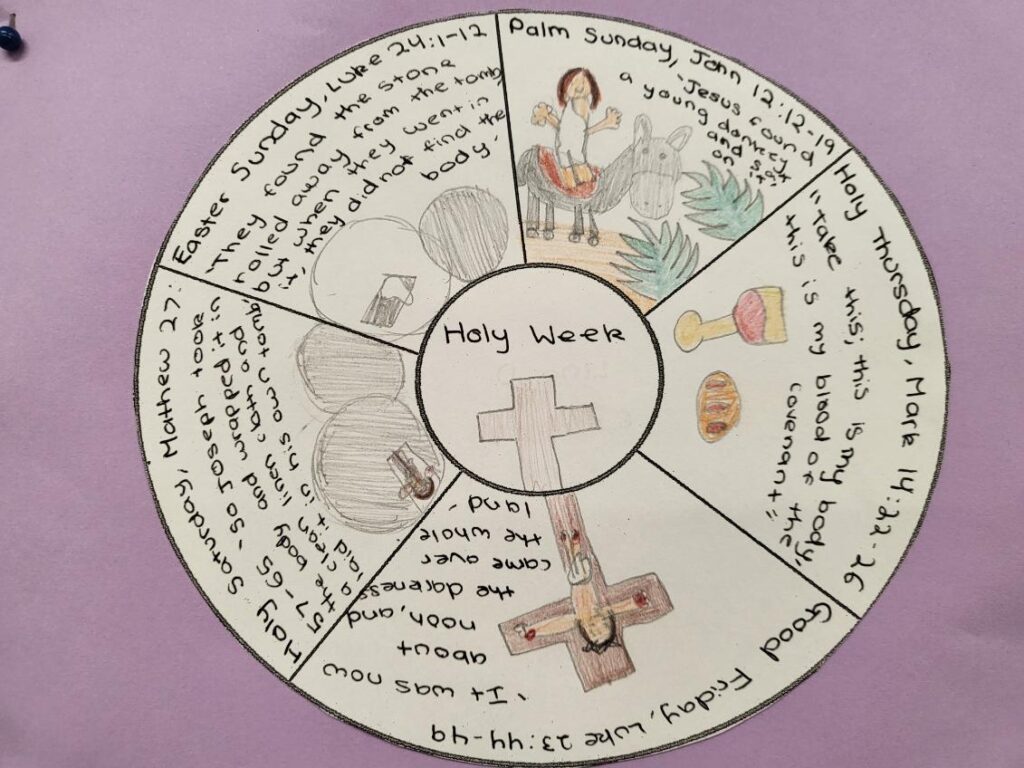 Holy Week
Palm Sunday, John 12:12-19
'Jesus found
a young donkey
and sat
on it'
Holy Thursday, Mark 14:22-26
"Take this; this is my body,
this is my blood of the
covenant"
Good Friday, Luke 23:44-49
'It was now
about
noon, and
the darkness
came over
the whole
land'
Holy Saturday, Mathew 27:
57-65 'So Joseph took
the body and wrapped it in
a clean linen cloth and
laid it in his own tomb'
Easter Sunday, Luke 24:1-12
'They found the stone
rolled away from the tomb,
when they went in,
they did not find the
body'